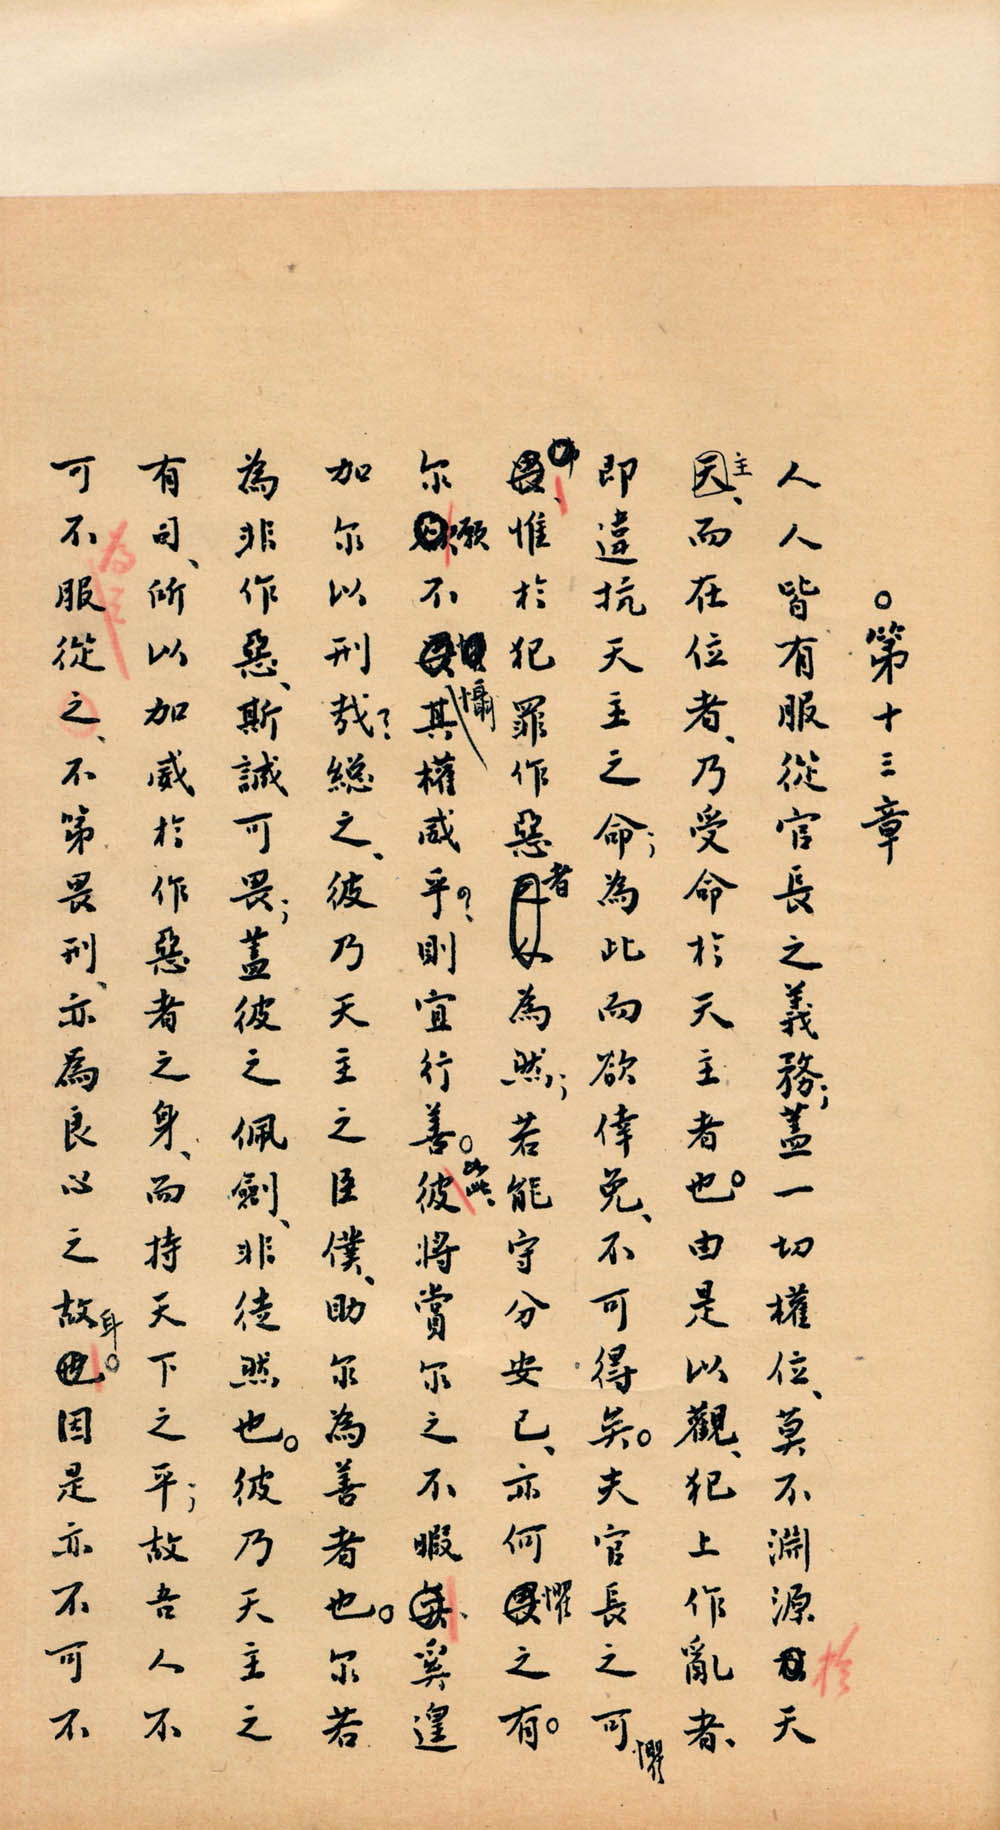 。第十三章
人人皆有服從官長之義務；蓋一切權位、莫不淵源於天
主、而在位者、乃受命於天主者也。由是以觀、犯上作亂者、
即違抗天主之命；為此而欲倖免、不可得矣。夫官長之可懼
惟於犯罪作惡者為然；若能守分安己、亦何懼之有。
尔願不懾其權威乎？則宜行善。彼將賞尔之不暇、奚遑
加尔以刑哉？總之、彼乃天主之臣僕、助尔為善者也。尔若
為非作惡、斯誠可畏；蓋彼之佩劍、非徒然也。彼乃天主之
有司、所以加威於作惡者之身、而持天下之平；故吾人不
可不服從之、不第畏刑、亦為良心之故耳。因是亦不可不